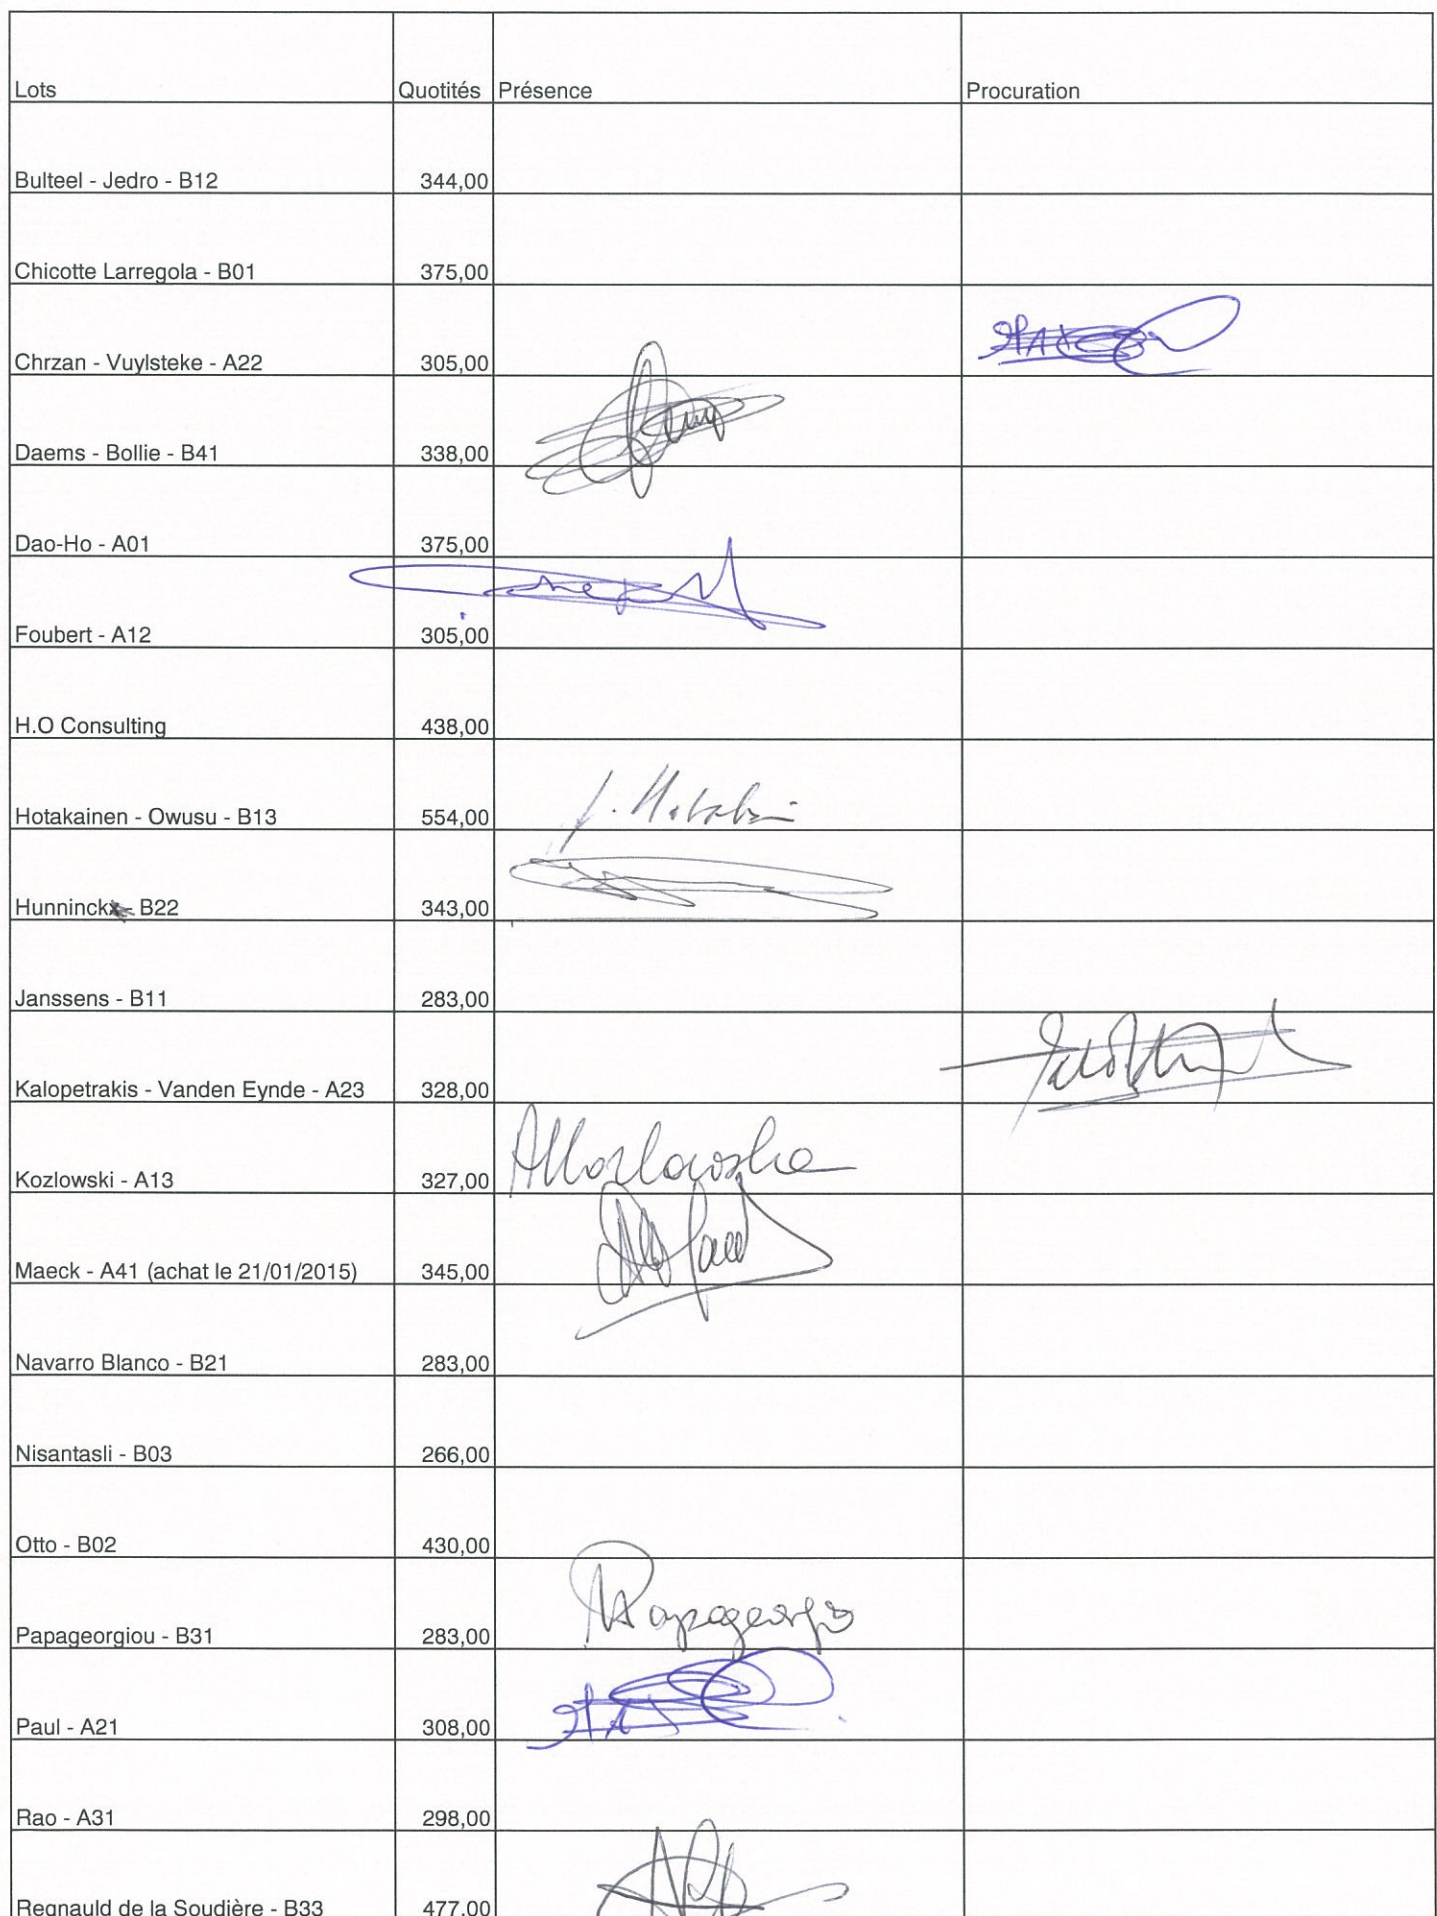 Lots Quotités Présence Procuration
Bulteel - Jedro - B12 344,00
Chicotte Larregola - B01 375,00
Chrzan - Vuylsteke - A22 305,00
Daems - Bollie - B41 338,00
Dao-Ho - A01 375,00
Foubert - A12 305,00
H.O Consulting 438,00
Hotakainen - Owusu - B13 554,00
Hunninckx - B22 343,00
Janssens - B11 283,00
Kalopetrakis - Vanden Eynde - A23 328,00
Kozlowski - A13 327,00
Maeck - A41 (achat le 21/01/2015) 345,00
Navarro Blanco - B21 283,00
Nisantasli - B03 266,00
Otto - B02 430,00
Papageorgiou - B31 283,00
Paul - A21 308,00
Rao - A31 298,00
Regnauld de la Soudière - B33 477,00